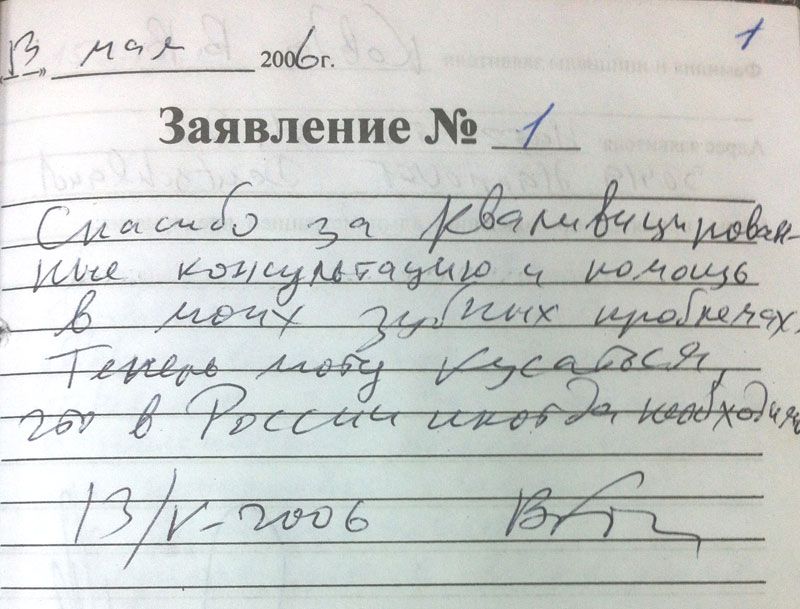 1
„13“ мая 2006г.
Заявление № 1
Спасибо за кваливицирован-
ные консультацию и помощь
в моих зубных проблемах.
Теперь могу кусаться,
что в России иногда необходимо
13/V-2006